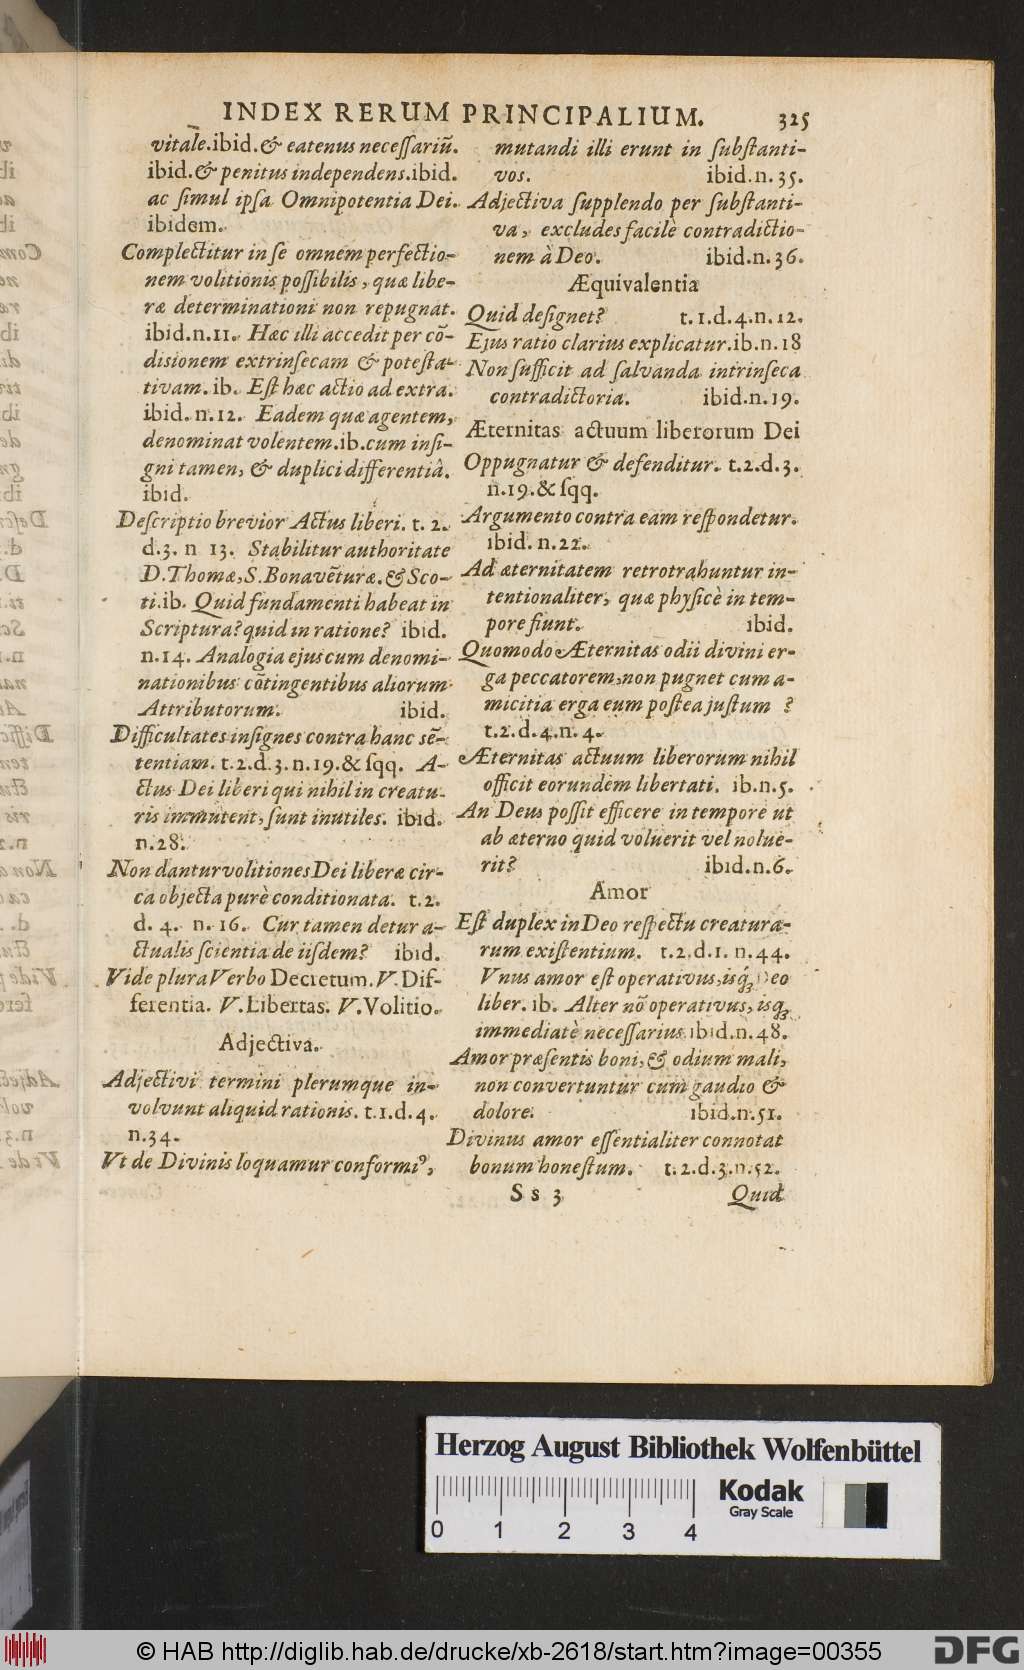 INDEX RERUM PRINCIPALIUM. 325
vitale. ibid. & eatenus neceſſariũ.
ibid. & penitus independens. ibid.
ac ſimul ipſa Omnipotentia Dei.
ibidem.
Complectitur in ſe omnem perfectio-
nem volitionis poſſibilis, quæ libe-
ræ determinationi non repugnat.
ibid. n. 11. Hæc illi accedit per cõ-
disionem extrinſecam & poteſta-
tivam. ib. Eſt hæc actio ad extra.
ibid. n. 12. Eadem quæ agentem,
denominat volentem. ib. cum inſi-
gni tamen, & duplici differentiâ.
ibid.
Deſcriptio brevior Actus liberi. t. 2.
d. 3. n 13. Stabilitur authoritate
D. Thomæ, S. Bonavẽturæ. & Sco-
ti. ib. Quid fundamenti habeat in
Scriptura? quid in ratione? ibid.
n. 14. Analogia ejus cum denomi-
nationibus cõtingentibus aliorum
Attributorum. ibid.
Difficultates inſignes contra hanc sẽ-
tentiam. t. 2. d. 3. n. 19. & ſqq. A-
ctus Dei liberi qui nihil in creatu-
ris immutent, ſunt inutiles. ibid.
n. 28.
Non dantur volitiones Dei liberæ cir-
ca objecta purè conditionata. t. 2.
d. 4. n. 16. Cur tamen detur a-
ctualis ſcientia de iiſdem? ibid.
Vide plura Verbo Decretum. V. Dif-
ferentia. V. Libertas. V. Volitio.
Adjectiva.
Adjectivi termini plerumque in-
volvunt aliquid rationis. t. 1. d. 4.
n. 34.
Vt de Divinis loquamur conformiꝰ,
mutandi illi erunt in ſubſtanti-
vos. ibid. n. 35.
Adjectiva ſupplendo per ſubſtanti-
va, excludes facilè contradictio-
nem à Deo. ibid. n. 36.
Æquivalentia
Quid deſignet? t. 1. d. 4. n. 12.
Ejus ratio clarius explicatur. ib. n. 18
Non ſufficit ad ſalvanda intrinſeca
contradictoria. ibid. n. 19.
Æternitas actuum liberorum Dei
Oppugnatur & defenditur. t. 2. d. 3.
n. 19. & ſqq.
Argumento contra eam reſpondetur.
ibid. n. 22.
Ad æternitatem retrotrahuntur in-
tentionaliter, quæ phyſicè in tem-
pore fiunt. ibid.
Quomodo Æternitas odii divini er-
ga peccatorem, non pugnet cum a-
micitia erga eum poſtea juſtum ?
t. 2. d. 4. n. 4.
Æternitas actuum liberorum nihil
officit eorundem libertati. ib. n. 5.
An Deus poſſit efficere in tempore ut
ab æterno quid voluerit vel nolue-
rit? ibid. n. 6.
Amor
Eſt duplex in Deo reſpectu creatura-
rum exiſtentium. t. 2. d. 1. n. 44.
Vnus amor eſt operativus, isq́; Deo
liber. ib. Alter nõ operativus, isq;
immediatè neceſſarius. ibid. n. 48.
Amor præſentis boni, & odium mali,
non convertuntur cum gaudio &
dolore. ibid. n. 51.
Divinus amor eſſentialiter connotat
bonum honeſtum. t. 2. d. 3. n. 52.
S s 3 Quid
Herzog August Bibliothek Wolfenbüttel
0 1 2 3 4
Kodak
Gray Scale
© HAB http://diglib.hab.de/drucke/xb-2618/start.htm?image=00355
DFG